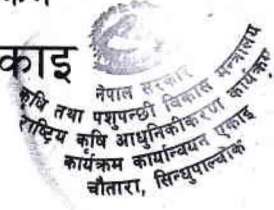 काइ
नेपाल सरकार
कृषि तथा पशुपन्छी विकास मन्त्रालय
राष्ट्रिय कृषि आधुनिकीकरण कार्यक्रम
कार्यक्रम कार्यान्वयन एकाइ
चौतारा, सिन्धुपाल्चोक